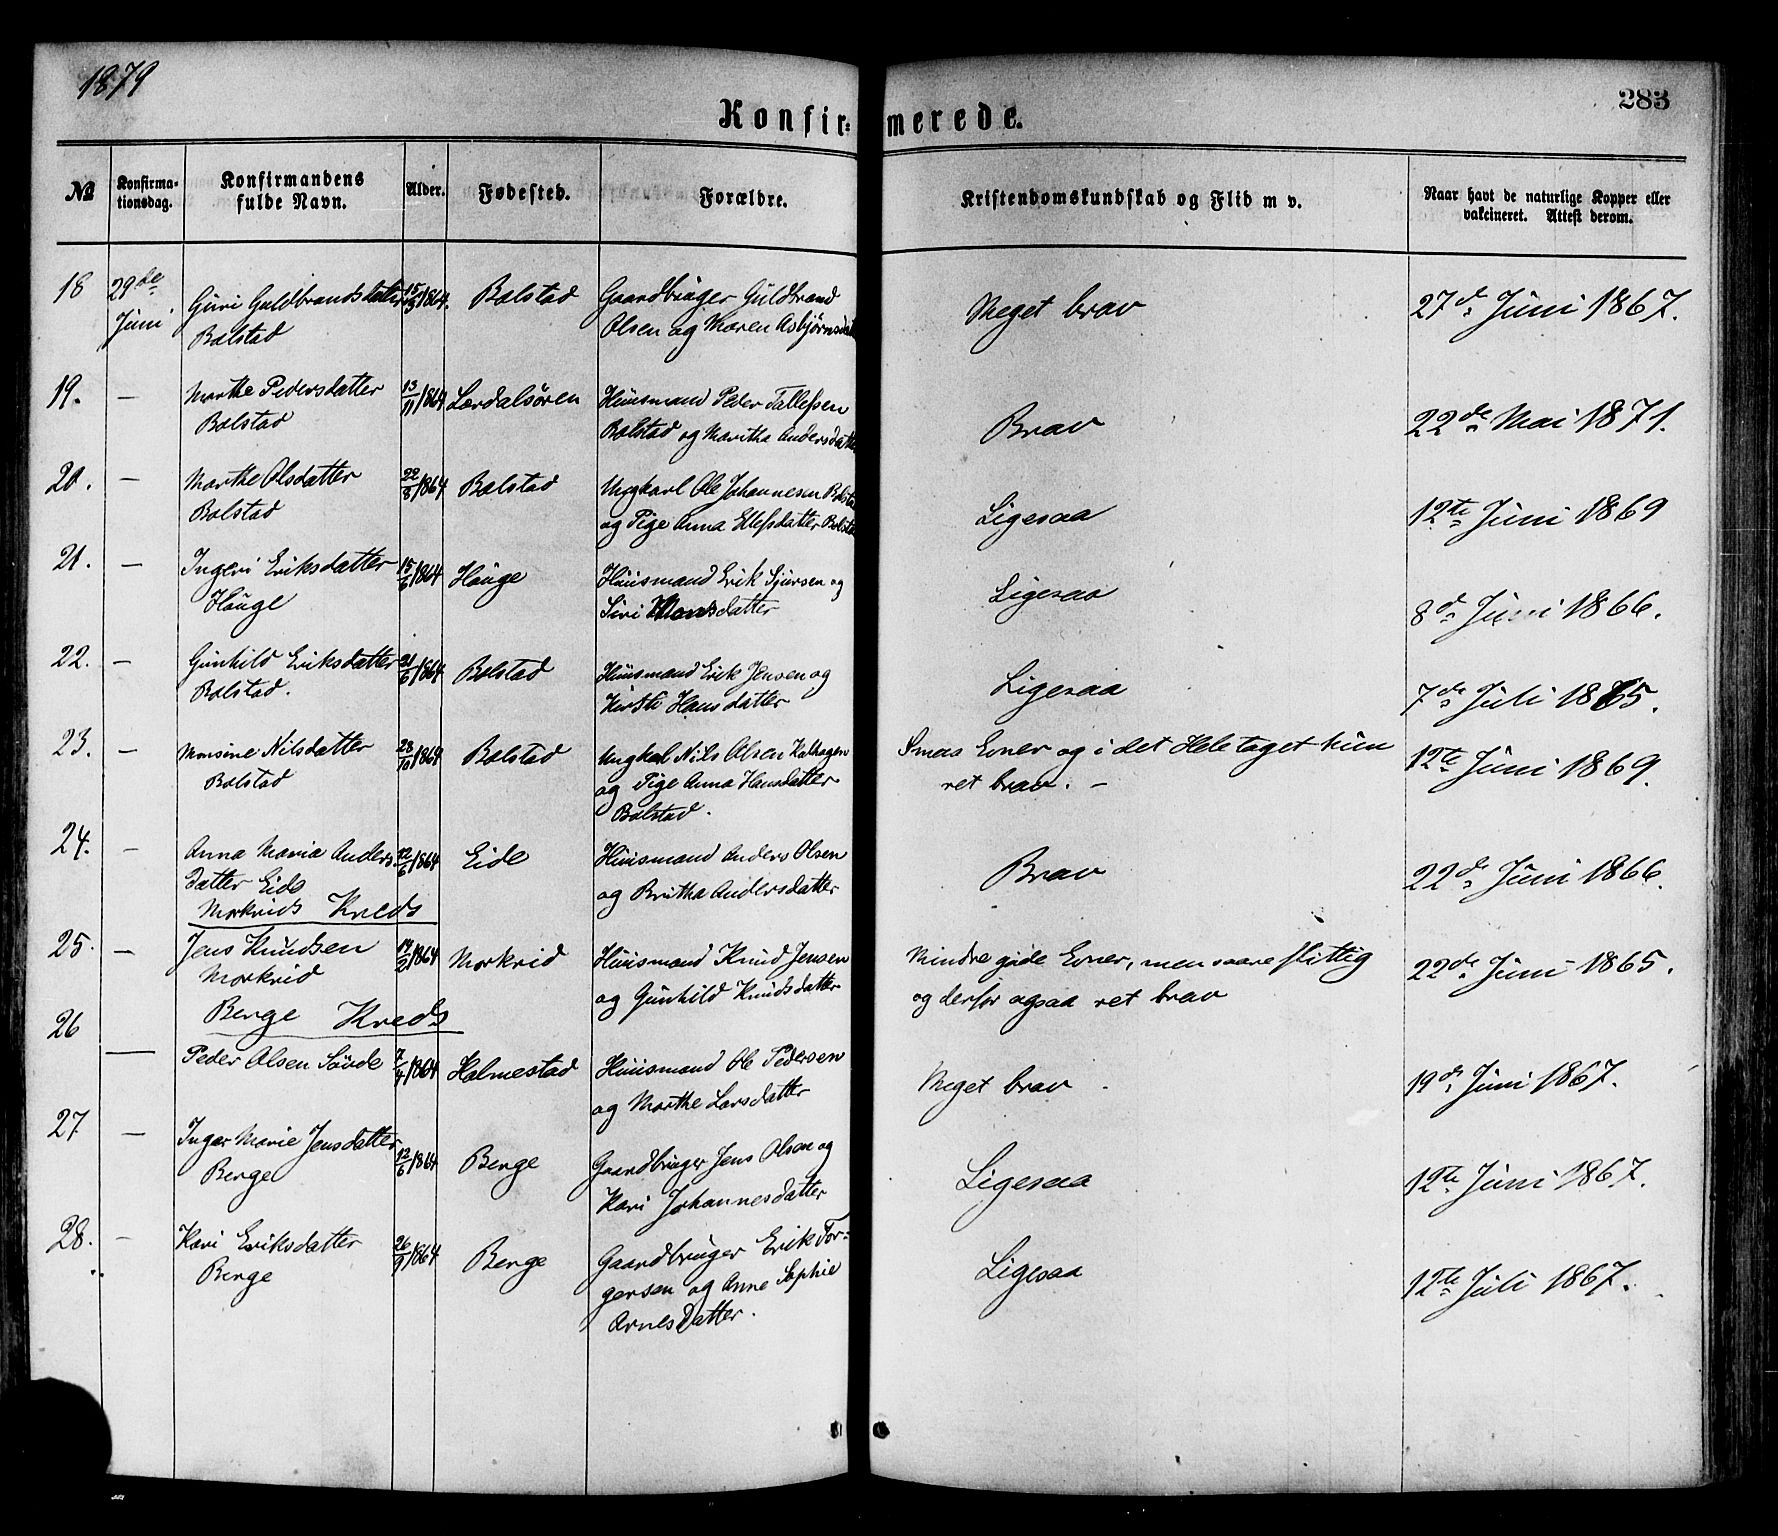 1879
283
Konfir=merede.
No
Konfirma-
tionsdag.
Konfirmandens
fulde Navn.
Alder.
Fødested.
Forældre.
Kristendomskundskab og Flid m v.
Naar havt de naturlige Kopper eller
vakcineret. Attest derom.
18 29de Guri Guldbrandsdatter 15/3 1864. Bolstad Gaardbruger Guldbrand Meget brav 27d Juni 1867.
Juni Bolstad Olsen og Maren Asbjørnsdat
19. — Marthe Pedersdatter 13/11 1864 Lærdalsøren Huusmand Peder Tollefsen Brav 22de Mai 1871.
Bolstad Bolstad og Maritha Andersdatte
20. — Marthe Olsdatter 22/8 1864 Bolstad Ungkarl Ole Johannesen Bolsta Ligesaa 12te Juni 1869
Bolstad og Pige Anna Ellefsdatter Bolsta
21. — Ingeri Eriksdatter 15/6 1864 Hauge Huusmand Erik Sjursen og Ligesaa 8d Juni 1866.
Hauge Siri Monsdatter
22. — Gunhild Eriksdatter 21/6 1864 Bolstad Huusmand Erik Jensen og Ligesaa 7de Juli 1865.
Bolstad. Hansdatter
23. — Monsine Nilsdatter 28/10 1864 Bolstad Ungkarl Nils Olsen Kalhagen Smaa Evner og i det Hele taget kun 12te Juni 1869.
Bolstad og Pige Anna Hansdatter ret brav. —
Bolstad.
24. — Anna Maria Anders- 12/6 1864 Eide Huusmand Anders Olsen Brav 22de Juni 1866.
datter Eide og Britha Andersdatter
Morkrids Kreds
25. — Jens Knudsen 14/2 1864 Morkrid Huusmand Knud Jensen Mindre gode Evner, men saare flittig 22de Juni 1865.
Morkrid og Gunhild Knudsdatter og derfor ogsaa ret brav
Berge Kreds
26 — Peder Olsen Søvde 7/4 1864 Holmestad Huusmand Ole Pedersen Meget brav 19de Juni 1867.
og Marthe Larsdatter
27 — Inger Marie Jensdatter 12/6 1864 Berge Gaardbruger Jens Olsen og Ligesaa 12te Juni 1867.
Berge Kari Johannesdatter
28. — Kari Eriksdatter 26/9 1864 Berge Gaardbruger Erik Tor- Ligesaa 12te Juli 1867.
Berge gersen og Anne Sophie
Arnesdatter.